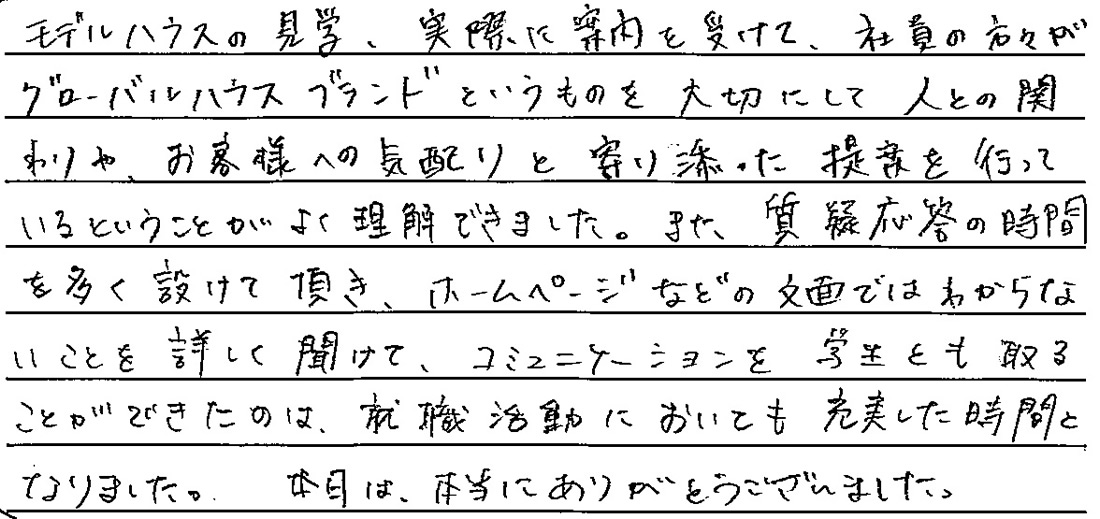 モデルハウスの見学、実際に案内を受けて、社員の方々が
グローバルハウスブランドというものを大切にして人との関
わりや、お客様への気配りと寄り添った提案を行って
いるということがよく理解できました。また、質疑応答の時間
を多く設けて頂き、ホームページなどの文面ではわからな
いことを詳しく聞けて、コミュニケーションを学生とも取る
ことができたのは、就職活動においても充実した時間と
なりました。 本日は、本当にありがとうございました。